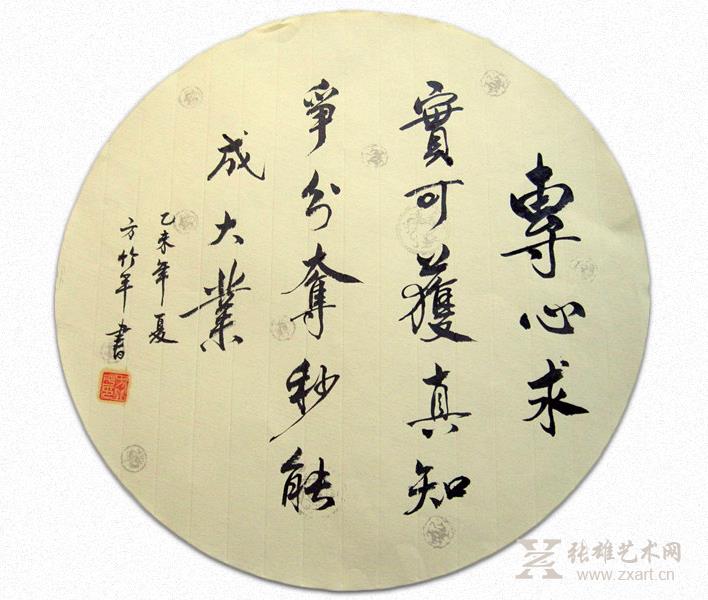 專心求
實可獲真知
爭分奪秒能
成大業
乙未年夏
方竹平書
张雄艺术网
www.zxart.cn